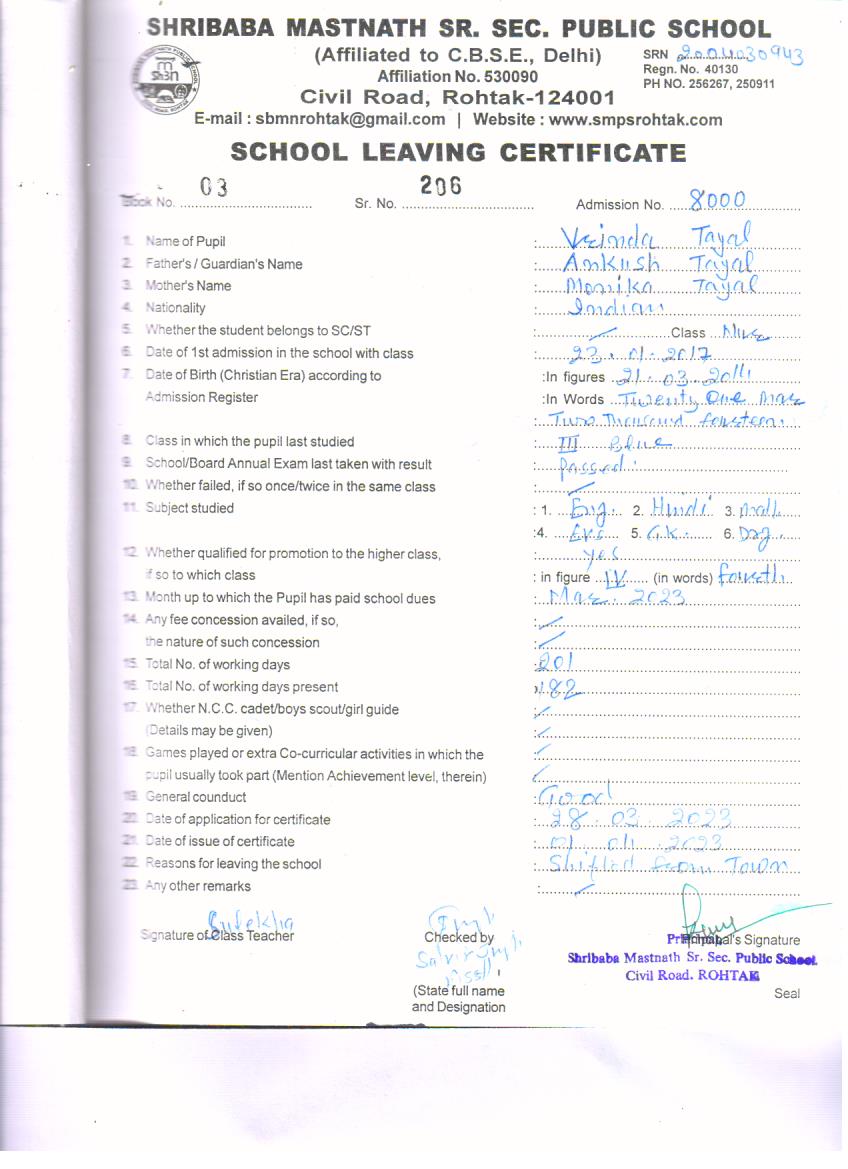 SHRIBABA MASTNATH SR. SEC. PUBLIC SCHOOL
(Affiliated to C.B.S.E., Delhi)
SRN 2004030943
Affiliation No. 530090
Regn. No. 40130
PH NO. 256267, 250911
Civil Road, Rohtak-124001
E-mail : sbmnrohtak@gmail.com | Website : www.smpsrohtak.com
SCHOOL LEAVING CERTIFICATE
Book No. 03 Sr. No. 206 Admission No. 8000
1. Name of Pupil : Vrinda Tayal
2. Father's / Guardian's Name : Ankush Tayal
3. Mother's Name : Monika Tayal
4. Nationality : Indian
5. Whether the student belongs to SC/ST : Class Nur
6. Date of 1st admission in the school with class : 23.01.2017
7. Date of Birth (Christian Era) according to :In figures 21.03.2014
Admission Register :In Words Twenty One Mar
: Two Thousand fourteen
8. Class in which the pupil last studied : III Blue
9. School/Board Annual Exam last taken with result : Passed
10. Whether failed, if so once/twice in the same class :
11. Subject studied : 1. Eng. 2. Hindi 3. Math
:4. Evs 5. G.K. 6. Dag
12. Whether qualified for promotion to the higher class, : yes
if so to which class : in figure IV (in words) fourth
13. Month up to which the Pupil has paid school dues : Mar. 2023
14. Any fee concession availed, if so, :
the nature of such concession :
15. Total No. of working days : 201
16. Total No. of working days present 182
17. Whether N.C.C. cadet/boys scout/girl guide :
(Details may be given) :
18. Games played or extra Co-curricular activities in which the :
pupil usually took part (Mention Achievement level, therein)
19. General counduct : Good
20. Date of application for certificate : 28.03.2023
21. Date of issue of certificate : 01.04.2023
22. Reasons for leaving the school : Shifted from Town
23. Any other remarks :
Surekha
Signature of Class Teacher Checked by Principal's Signature
Shribaba Mastnath Sr. Sec. Public School
Civil Road. ROHTAK
(State full name
and Designation
Seal